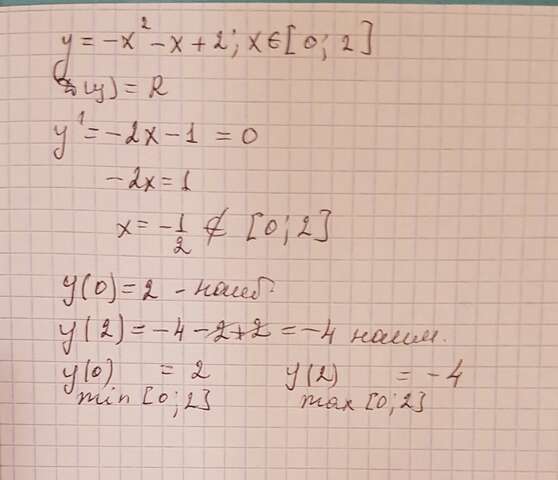 y = -x² - x + 2; x ∈ [0; 2]
D(y) = R
y' = -2x - 1 = 0
-2x = 1
x = -1/2 ∉ [0; 2]
y(0) = 2 - наиб.
y(2) = -4 - 2 + 2 = -4 наим.
y(0) = 2 y(2) = -4
min [0; 2] max [0; 2]